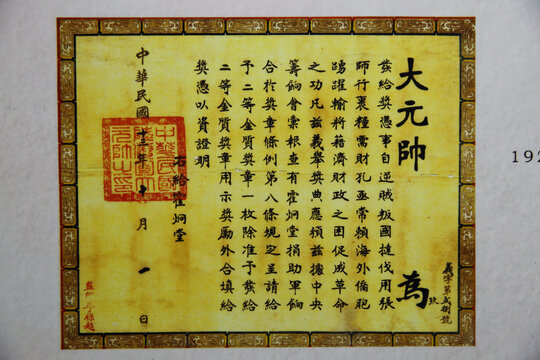 大元帥 為
發給獎憑事自逆賊叛國撻伐用張
師行裹糧需財孔亟常賴海外僑胞
踴躍輸將藉濟財政之困促成革命
之功凡茲義舉獎典應頒茲據中央
籌餉會彙報查有霍炯堂捐助軍餉
合於獎章條例第八條規定呈請給
予二等金質獎章一枚除准予發給
二等金質獎章用示獎勵外合填給
獎憑以資證明
右給霍炯堂
中華民國十三年十月一日
義字第貳捌玖號
192